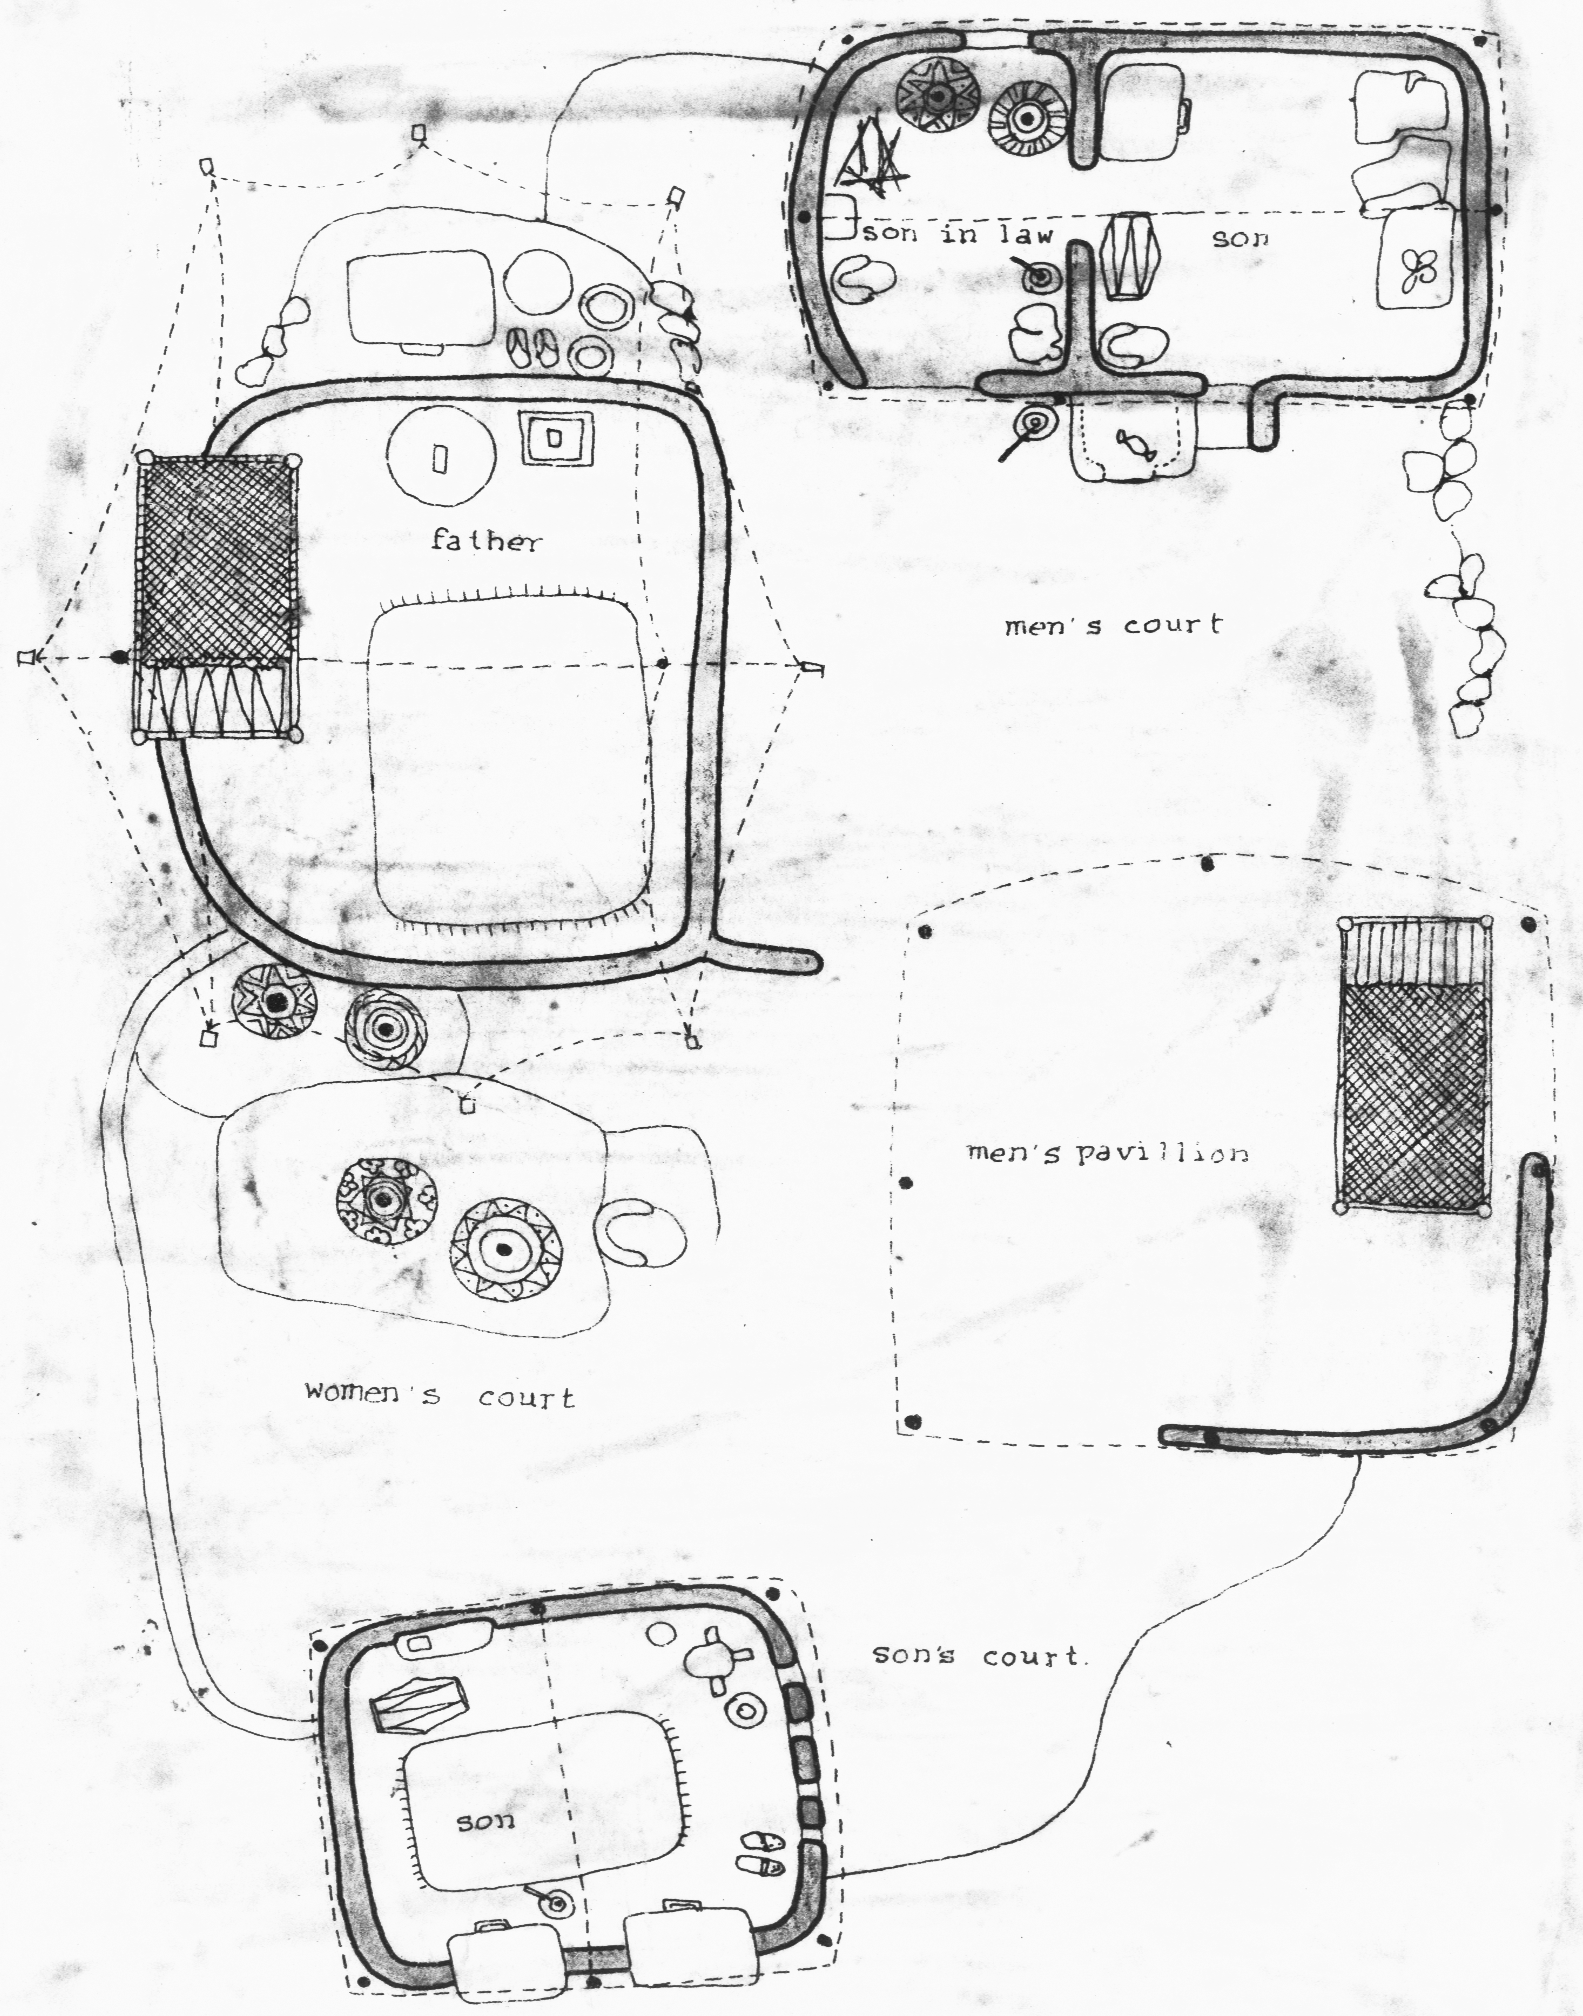 son in law
son
father
men's court
men's pavillion
women's court
son's court.
son